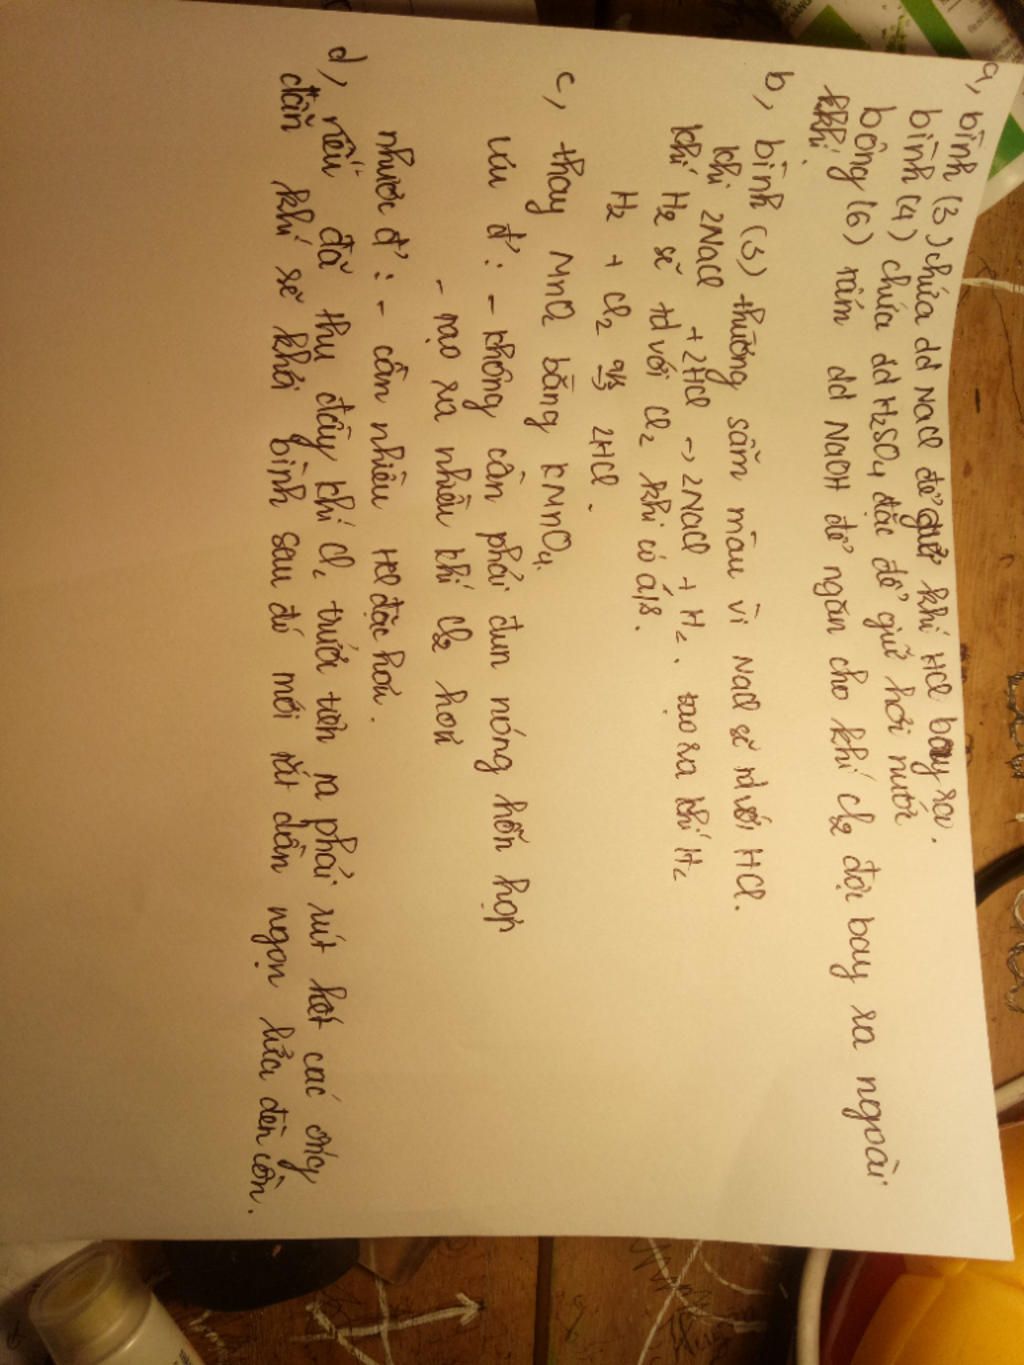 a, bình (3) chứa dd NaCl để giữ khí HCl bay ra.
bình (4) chứa dd H₂SO₄ đặc để giữ hơi nước
bông (6) tẩm dd NaOH để ngăn cho khí Cl₂ độc bay ra ngoài
khi.
b, bình (3) thường sẫm màu vì NaCl sẽ td với HCl.
khi 2NaCl + 2HCl → 2NaCl + H₂. tạo ra khí H₂
khí H₂ sẽ td với Cl₂ khi có á/s.
H₂ + Cl₂ a/s → 2HCl.
c, thay MnO₂ bằng KMnO₄.
ưu đ': - không cần phải đun nóng hỗn hợp
- tạo ra nhiều khí Cl₂ hơn
nhược đ': - cần nhiều HCl đặc hơn.
d, nếu đã thu đầy khí Cl₂ trước tiên ra phải rút hết các ống
dẫn khí sẽ khỏi bình sau đó mới tắt dần ngọn lửa đèn cồn.